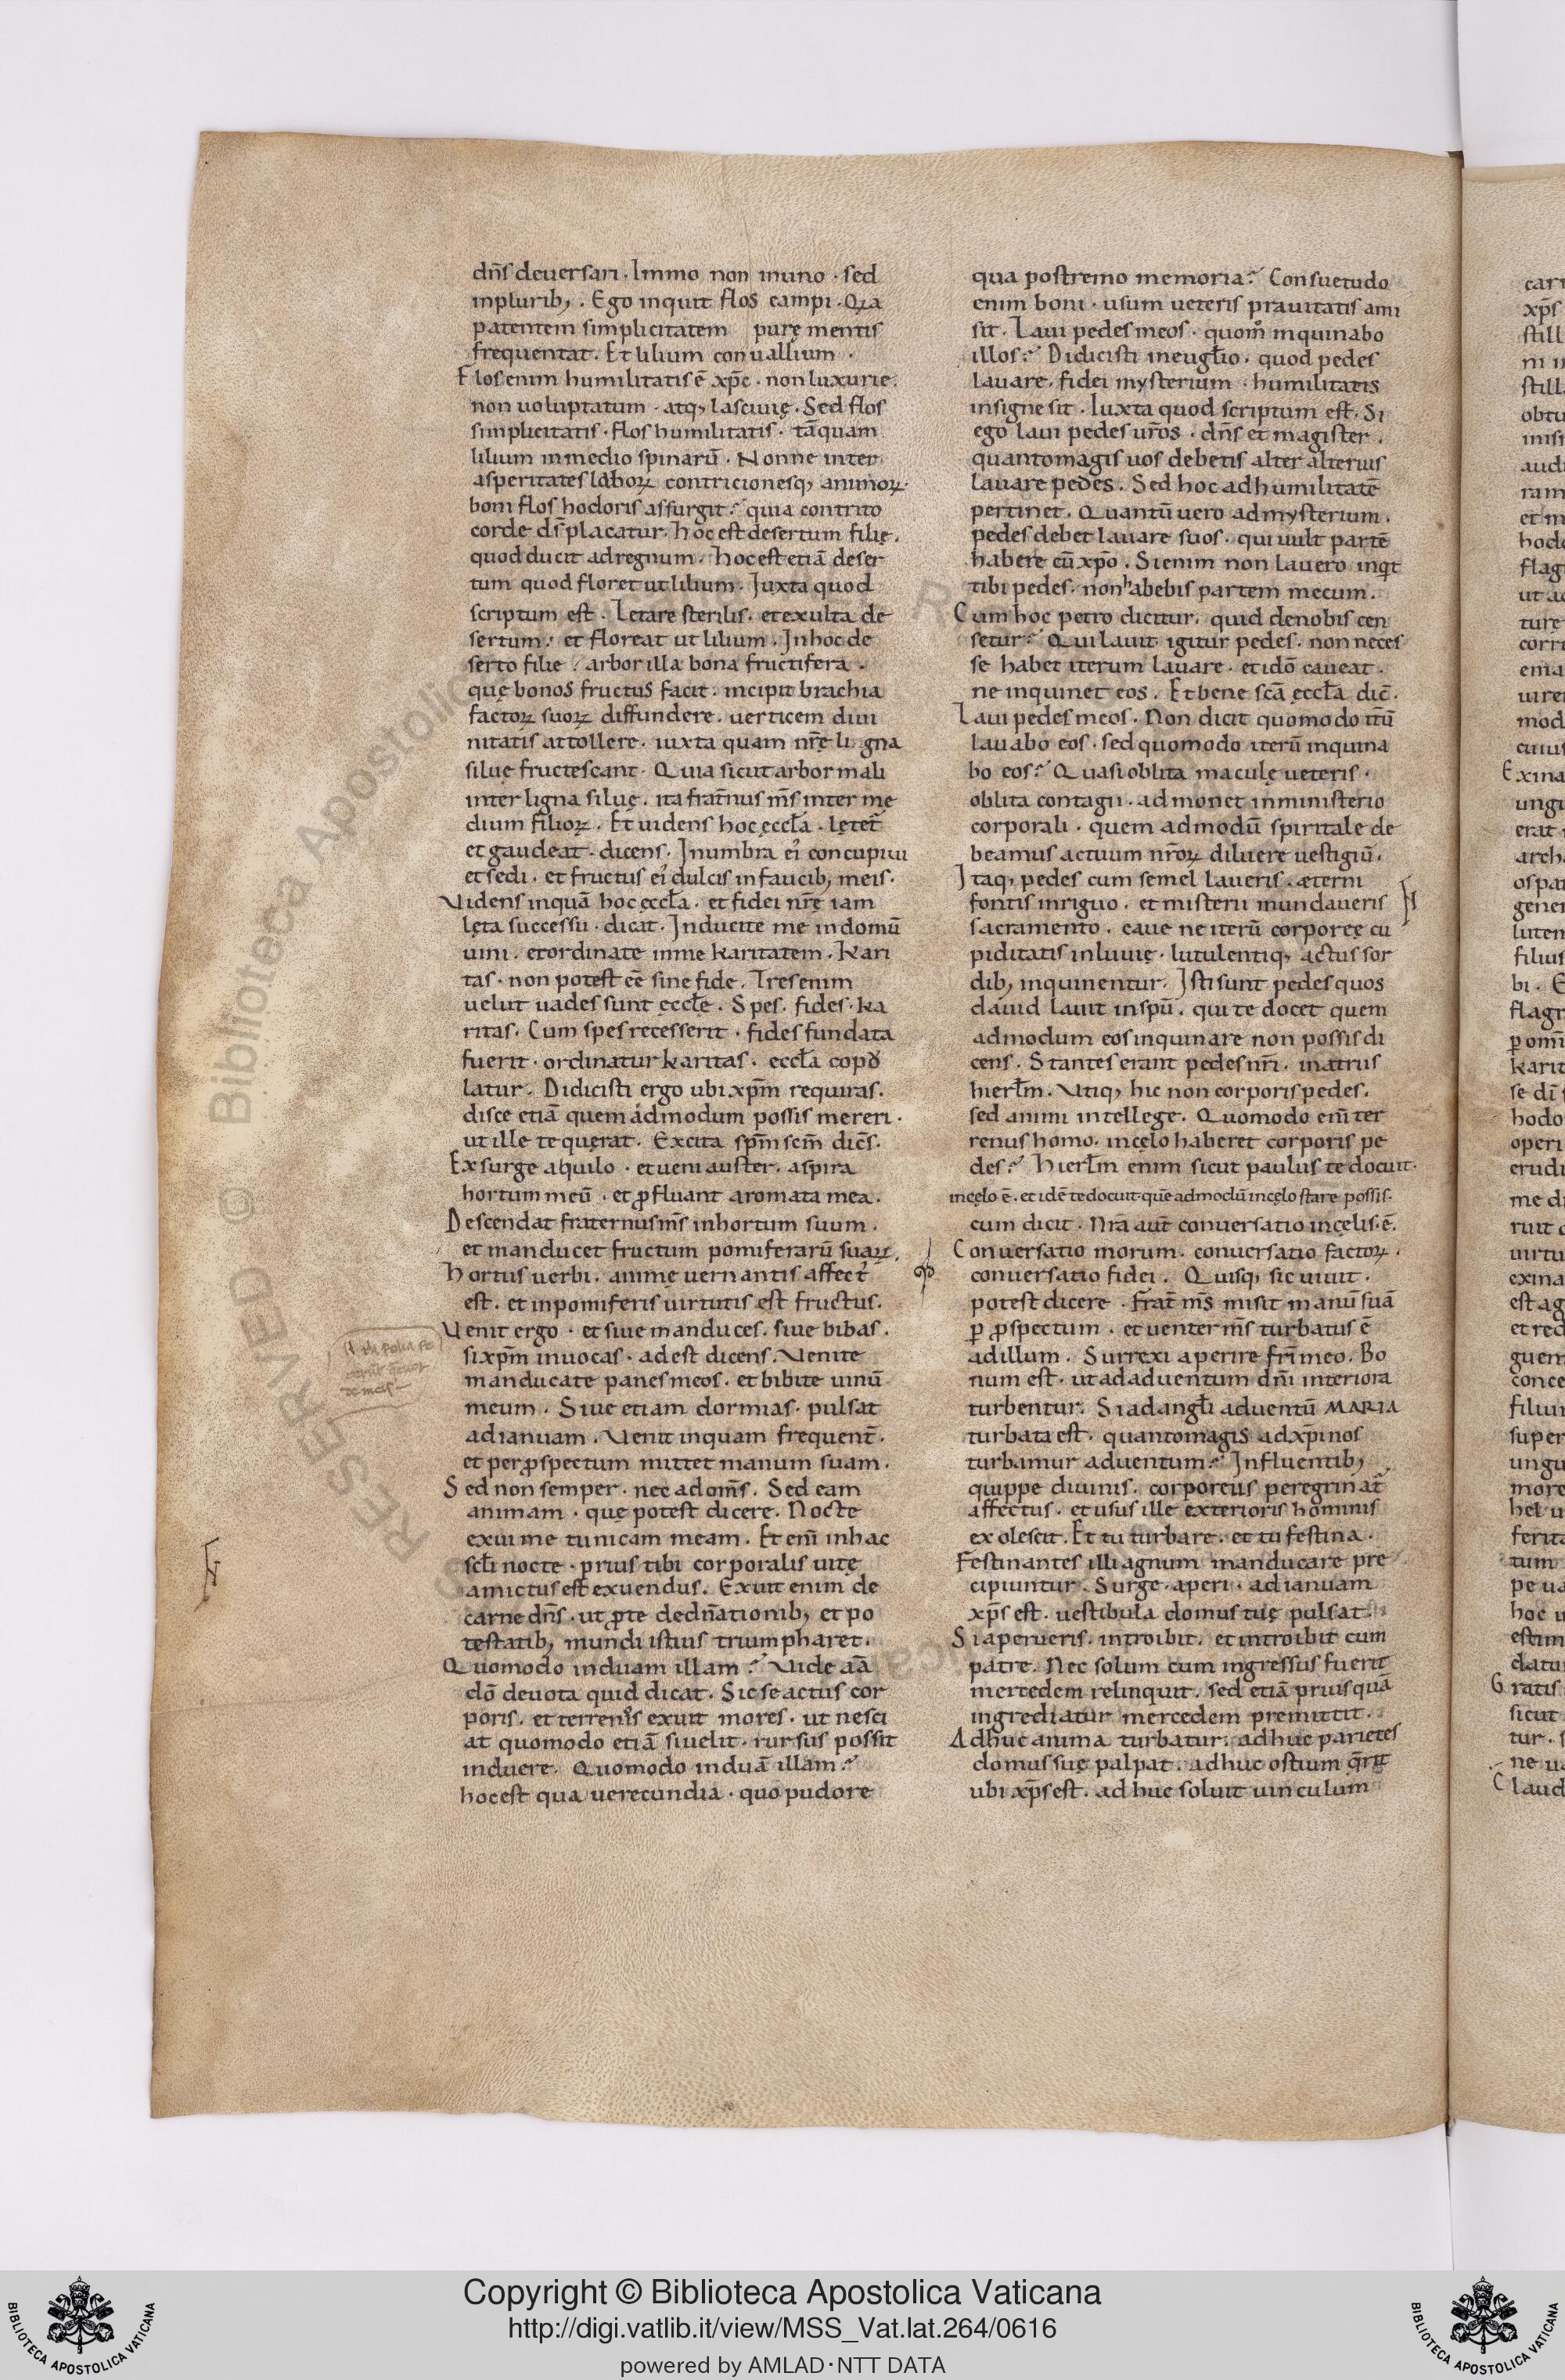 dn̄s deuersari. Immo non in uno. sed
in plurib;. Ego inquit flos campi. Q̄a
patentem simplicitatem purę mentis
frequentat. Et lilium conuallium.
Flos enim humilitatis ē xp̄c. non luxurie.
non uoluptatum. atq; lasciuię. Sed flos
simplicitatis. flos humilitatis. tāquam
lilium in medio spinarū. Nonne inter
asperitates laboꝝ contricionesq; animoꝝ.
boni flos hodoris assurgit? quia contrito
corde dr̄ placatur. hoc est desertum filię.
quod ducit ad regnum. hoc est etiā deser
tum quod floret ut lilium. Iuxta quod
scriptum est. Letare sterilis. et exulta de
sertum. et floreat ut lilium. In hoc de
serto filie. arbor illa bona fructifera.
quę bonos fructus facit. incipit brachia
factoꝝ suoꝝ diffundere. uerticem diui
nitatis attollere. iuxta quam nr̄ę ligna
siluę fructescant. Quia sicut arbor mali
inter ligna siluę. ita frat̄nus m̄s inter mę
dium filioꝝ. Et uidens hoc ęccl̄a. lętet̄
et gaudeat. dicens. In umbra ei᾿ concupiui
et sedi. et fructus ei᾿ dulcis in faucib; meis.
Uidens inquā hoc ęccl̄a. et fidei nr̄ę iam
lęta successu. dicat. Inducite me in domū
uini. et ordinate in me karitatem. Kari
tas. non potest ēē sine fide. Tres enim
uelut uades sunt ęccl̄ę. Spes. fides. ka
ritas. Cum spes recesserit. fides fundata
fuerit. ordinatur karitas. eccl̄a copu
latur. Didicisti ergo ubi xp̄m requiras.
disce etiā quem admodum possis mereri.
ut ille te quęrat. Excita sp̄m sc̄m dic̄s.
Exsurge aquilo. et ueni auster. aspira
hortum meū. et ꝓfluant aromata mea.
Descendat fraternus m̄s in hortum suum.
et manducet fructum pomiferarū suaꝝ.
hortus uerbi. animę uernantis affect᾿
est. et in pomiferis uirtutis est fructus.
Uenit ergo. et siue manduces. siue bibas.
si xp̄m inuocas. adest dicens. Uenite
manducate panes meos. et bibite uinū
meum. Siue etiam dormias. pulsat
ad ianuam. Uenit inquam frequent̄.
et per ꝓspectum mittet manum suam.
Sed non semper. nec ad om̄s. Sed eam
animam. quę potest dicere. Nocte
exui me tunicam meam. Et eni᾿ in hac
scl̄i nocte. prius tibi corporalis uitę
amictus est exuendus. Exuit enim de
carne dn̄s. ut ꝓ te dedn̄ationib; et po
testatib; mundi istius triumpharet.
Quomodo induam illam? Uide aīā
dō deuota quid dicat. Sic se actus cor
poris. et terrenis exuit mores. ut nesci
at quomodo etiā si uelit. rursus possit
induere. Quomodo induā illam?
hoc est qua uerecundia. quo pudore
qua postremo memoria? Consuetudo
enim boni. usum ueteris prauitatis ami
sit. Laui pedes meos. quom̊ inquinabo
illos? Didicisti in eugl̄io. quod pedes
lauare. fidei mysterium. humilitatis
insigne sit. Iuxta quod scriptum est. Si
ego laui pedes ur̄os. dn̄s et magister.
quantomagis uos debetis alter alterius
lauare pedes. Sed hoc ad humilitatē
pertinet. Quantū uero ad mysterium.
pedes debet lauare suos. qui uult partē
habere cū xp̄o. Si enim non lauero inqt
tibi pedes. non habebis partem mecum.
Cum hoc petro dicitur. quid de nobis cen
setur? Qui lauit igitur pedes. non neces
se habet iterum lauare. et idō caueat.
ne inquinet eos. Et bene sc̄a ęccl̄a dic̄.
Laui pedes meos. Non dicit quomodo itū
lauabo eos. sed quomodo iterū inquina
bo eos? Quasi oblita maculę ueteris.
oblita contagii. admonet in ministerio
corporali. quem admodū spiritale de
beamus actuum nr̄oꝝ diluere uestigiū.
Itaq; pedes cum semel laueris. æterni
fontis inriguo. et misterii mundaueris
sacramento. caue ne iterū corporeę cu
piditatis inluuię. lutulentiq; actus sor
dib; inquinentur. Isti sunt pedes quos
dauid lauit in spū. qui te docet quem
admodum eos inquinare non possis di
cens. Stantes erant pedes nr̄i. in atriis
hierl̄m. Utiq; hic non corporis pedes.
sed animi intellege. Quomodo eni᾿ ter
renus homo. in cęlo haberet corporis pe
des? Hierl̄m enim sicut paulus te docuit.
in cęlo ē. et idē te docuit. quē admodū in cęlo stare possis.
cum dicit. Nr̄a aut̄ conuersatio in cęlis. ē.
Conuersatio morum. conuersatio factoꝝ.
conuersatio fidei. Quisq; sic uiuit.
potest dicere. Frat̄ m̄s misit manū suā
ꝑ ꝓspectum. et uenter m̄s turbatus ē
ad illum. Surrexi aperire fr̄i meo. Bo
num est. ut ad aduentum dn̄i interiora
turbentur. Si ad angl̄i aduentū MARIA
turbata est. quantomagis ad xp̄i nos
turbamur aduentum? Influentib;
quippe diuinis. corporeus peregrinat̄
affectus. et usus ille exterioris hominis
exolescit. Et tu turbare. et tu festina.
Festinantes illi agnum manducare pre
cipiuntur. Surge. aperi. ad ianuam
xp̄s est. uestibula domus tuę pulsat.
Si aperueris. introibit. et introibit cum
patre. Nec solum cum ingressus fuerit
mercedem relinquit. sed etiā priusquā
ingrediatur mercedem premittit.
Adhuc anima turbatur. adhuc parietes
domus suę palpat. adhuc ostium q̄rit
ubi xp̄s est. adhuc soluit uinculum
Copyright © Biblioteca Apostolica Vaticana
http://digi.vatlib.it/view/MSS_Vat.lat.264/0616
powered by AMLAD·NTT DATA
BIBLIOTECA APOSTOLICA VATICANA
BIBLIOTECA APOSTOLICA VATICANA